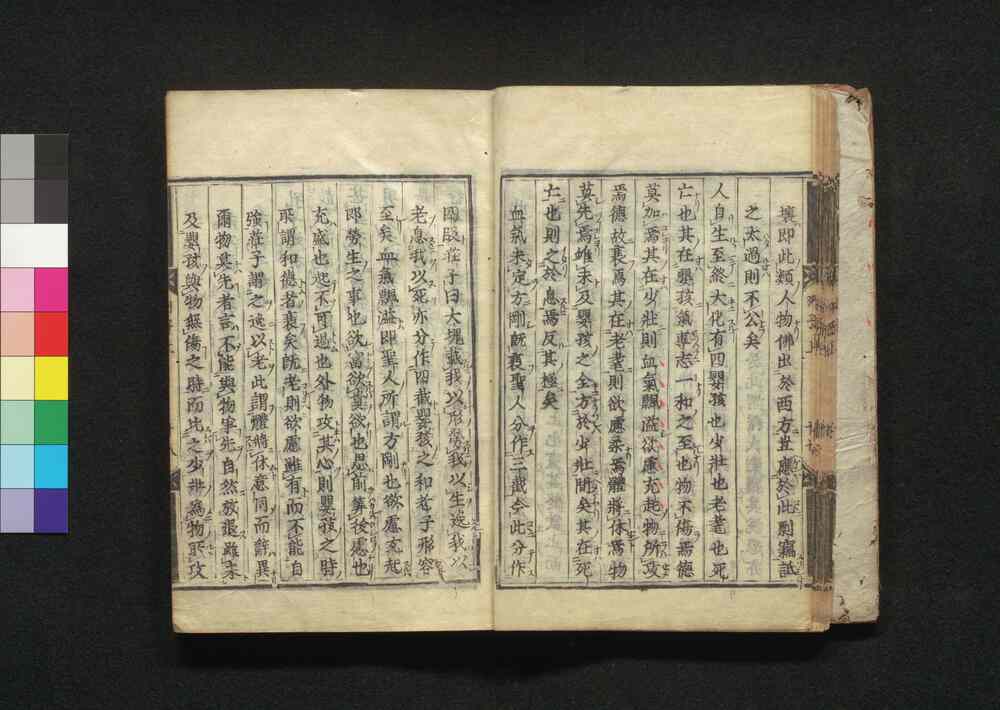 壤即此類人物佛出於西方豈應於此剽竊詆
之太過則不公矣
人自生至終大化有四嬰孩也少壯也老耄也死
亡也其在嬰孩氣專志一和之至也物不傷焉德
莫加焉其在少壯則血氣飄溢欲慮充起物所攻
焉德故衰焉其在老耄則欲慮柔焉體將休焉物
莫先焉雖未及嬰孩之全方於少壯間矣其在死
亡也則之於息焉反其極矣
血氣未定方剛既衰聖人分作三截今此分作
四段莊子曰大塊載我以形勞我以生逸我以
老息我以死亦分作四截嬰孩之和老子形容
至矣血氣飄溢即聖人所謂方剛也欲慮充起
即勞生之事也欲富欲貴欲也思前筭後慮也
充盛也起不可遏也外物攻其心則嬰孩之時
所謂和德者衰矣既老則欲慮雖有而不能自
強莊子謂之逸以老此謂體將休意同而辭異
爾物莫先者言不能與物爭先自然放退雖未
及嬰孩與物無傷之時而比之少壯為物所攻